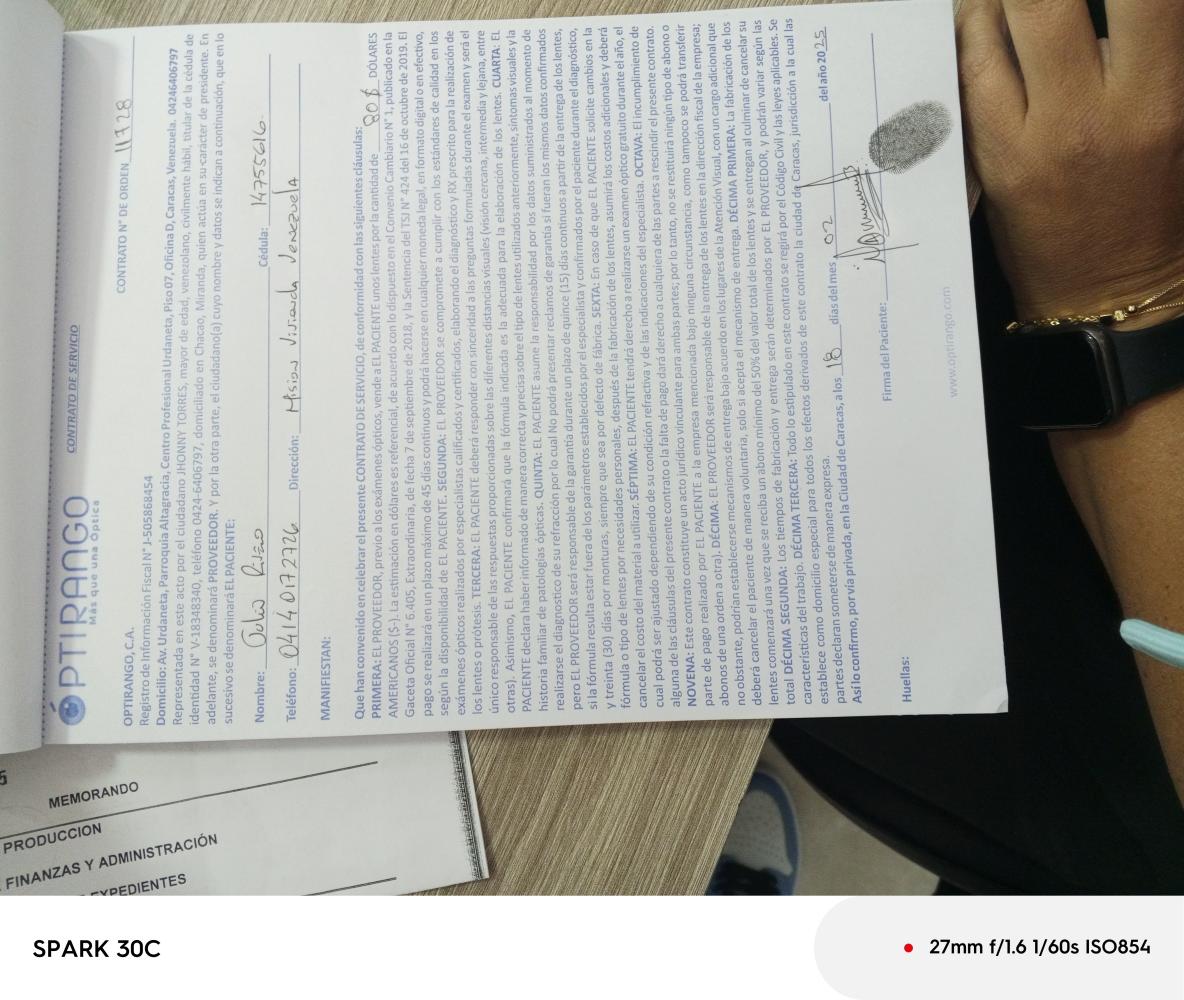 ÓPTIRANGO
Más que una Óptica
CONTRATO DE SERVICIO
CONTRATO N° DE ORDEN 11728
OPTIRANGO, C.A.
Registro de Información Fiscal N° J-505868454
Domicilio: Av. Urdaneta, Parroquia Altagracia, Centro Profesional Urdaneta, Piso 07, Oficina D, Caracas, Venezuela. 04246406797
Representada en este acto por el ciudadano JHONNY TORRES, mayor de edad, venezolano, civilmente hábil, titular de la cédula de
identidad N° V-18348340, teléfono 0424-6406797, domiciliado en Chacao, Miranda, quien actúa en su carácter de presidente. En
adelante, se denominará PROVEEDOR. Y por la otra parte, el ciudadano(a) cuyo nombre y datos se indican a continuación, que en lo
sucesivo se denominará EL PACIENTE:
Nombre: Julio Cédula: 14755616
Teléfono: 04140172726 Dirección: Mision Vivienda Venezuela
MANIFIESTAN:
Que han convenido en celebrar el presente CONTRATO DE SERVICIO, de conformidad con las siguientes cláusulas:
PRIMERA: EL PROVEEDOR, previo a los exámenes ópticos, vende a EL PACIENTE unos lentes por la cantidad de 80$ DÓLARES
AMERICANOS ($-). La estimación en dólares referencial, de acuerdo con lo dispuesto en el Convenio Cambiario N° 1, publicado en la
Gaceta Oficial N° 6.405, Extraordinaria, de fecha 7 de septiembre de 2018, y la Sentencia del TSJ N° 424 del 16 de octubre de 2019. El
pago se realizará en un plazo máximo de 45 días continuos y podrá hacerse en cualquier moneda legal, en formato digital o en efectivo,
según la disponibilidad de EL PACIENTE. SEGUNDA: EL PROVEEDOR se compromete a cumplir con los estándares de calidad en los
exámenes ópticos realizados por especialistas calificados y certificados, elaborando el diagnóstico y RX prescrito para la realización de
los lentes o prótesis. TERCERA: EL PACIENTE deberá responder con sinceridad a las preguntas formuladas durante el examen y será el
único responsable de las respuestas proporcionadas sobre las diferentes distancias visuales (visión cercana, intermedia y lejana, entre
otras). Asimismo, EL PACIENTE confirmará que la fórmula indicada es la adecuada para la elaboración de los lentes. CUARTA: EL
PACIENTE declara haber informado de manera correcta y precisa sobre el tipo de lentes utilizados anteriormente, síntomas visuales y la
historia familiar de patologías ópticas. QUINTA: EL PACIENTE asume la responsabilidad por los datos suministrados al momento de
realizarse el diagnostico de su refracción por lo cual No podrá presentar reclamos de garantía si fueran los mismos datos confirmados
pero EL PROVEEDOR será responsable de la garantía durante un plazo de quince (15) días continuos a partir de la entrega de los lentes,
si la fórmula resulta estar fuera de los parámetros establecidos por el especialista y confirmados por el paciente durante el diagnóstico,
y treinta (30) días por monturas, siempre que sea por defecto de fábrica. SEXTA: En caso de que EL PACIENTE solicite cambios en la
fórmula o tipo de lentes por necesidades personales, después de la fabricación de los lentes, asumirá los costos adicionales y deberá
cancelar el costo del material a utilizar. SÉPTIMA: EL PACIENTE tendrá derecho a realizarse un examen óptico gratuito durante el año, el
cual podrá ser ajustado dependiendo de su condición refractiva y de las indicaciones del especialista. OCTAVA: El incumplimiento de
alguna de las cláusulas del presente contrato o la falta de pago dará derecho a cualquiera de las partes a rescindir el presente contrato.
NOVENA: Este contrato constituye un acto jurídico vinculante para ambas partes; por lo tanto, no se restituirá ningún tipo de abono o
parte de pago realizado por EL PACIENTE a la empresa mencionada bajo ninguna circunstancia, como tampoco se podrá transferir
abonos de una orden a otra). DÉCIMA: EL PROVEEDOR será responsable de la entrega de los lentes en la dirección fiscal de la empresa;
no obstante, podrían establecerse mecanismos de entrega bajo acuerdo en los lugares de la Atención Visual, con un cargo adicional que
deberá cancelar el paciente de manera voluntaria, solo si acepta el mecanismo de entrega. DÉCIMA PRIMERA: La fabricación de los
lentes comenzará una vez que se reciba un abono mínimo del 50% del valor total de los lentes y se entregan al culminar de cancelar su
total DÉCIMA SEGUNDA: Los tiempos de fabricación y entrega serán determinados por EL PROVEEDOR, y podrán variar según las
características del trabajo. DÉCIMA TERCERA: Todo lo estipulado en este contrato se regirá por el Código Civil y las leyes aplicables. Se
establece como domicilio especial para todos los efectos derivados de este contrato la ciudad de Caracas, jurisdicción a la cual las
partes declaran someterse de manera expresa.
Así lo confirmo, por vía privada, en la Ciudad de Caracas, a los 18 días del mes 02 del año 2025
Firma del Paciente:
Huellas:
www.optirango.com
5
MEMORANDO
PRODUCCION
FINANZAS Y ADMINISTRACIÓN
EXPEDIENTES
SPARK 30C
27mm f/1.6 1/60s ISO854